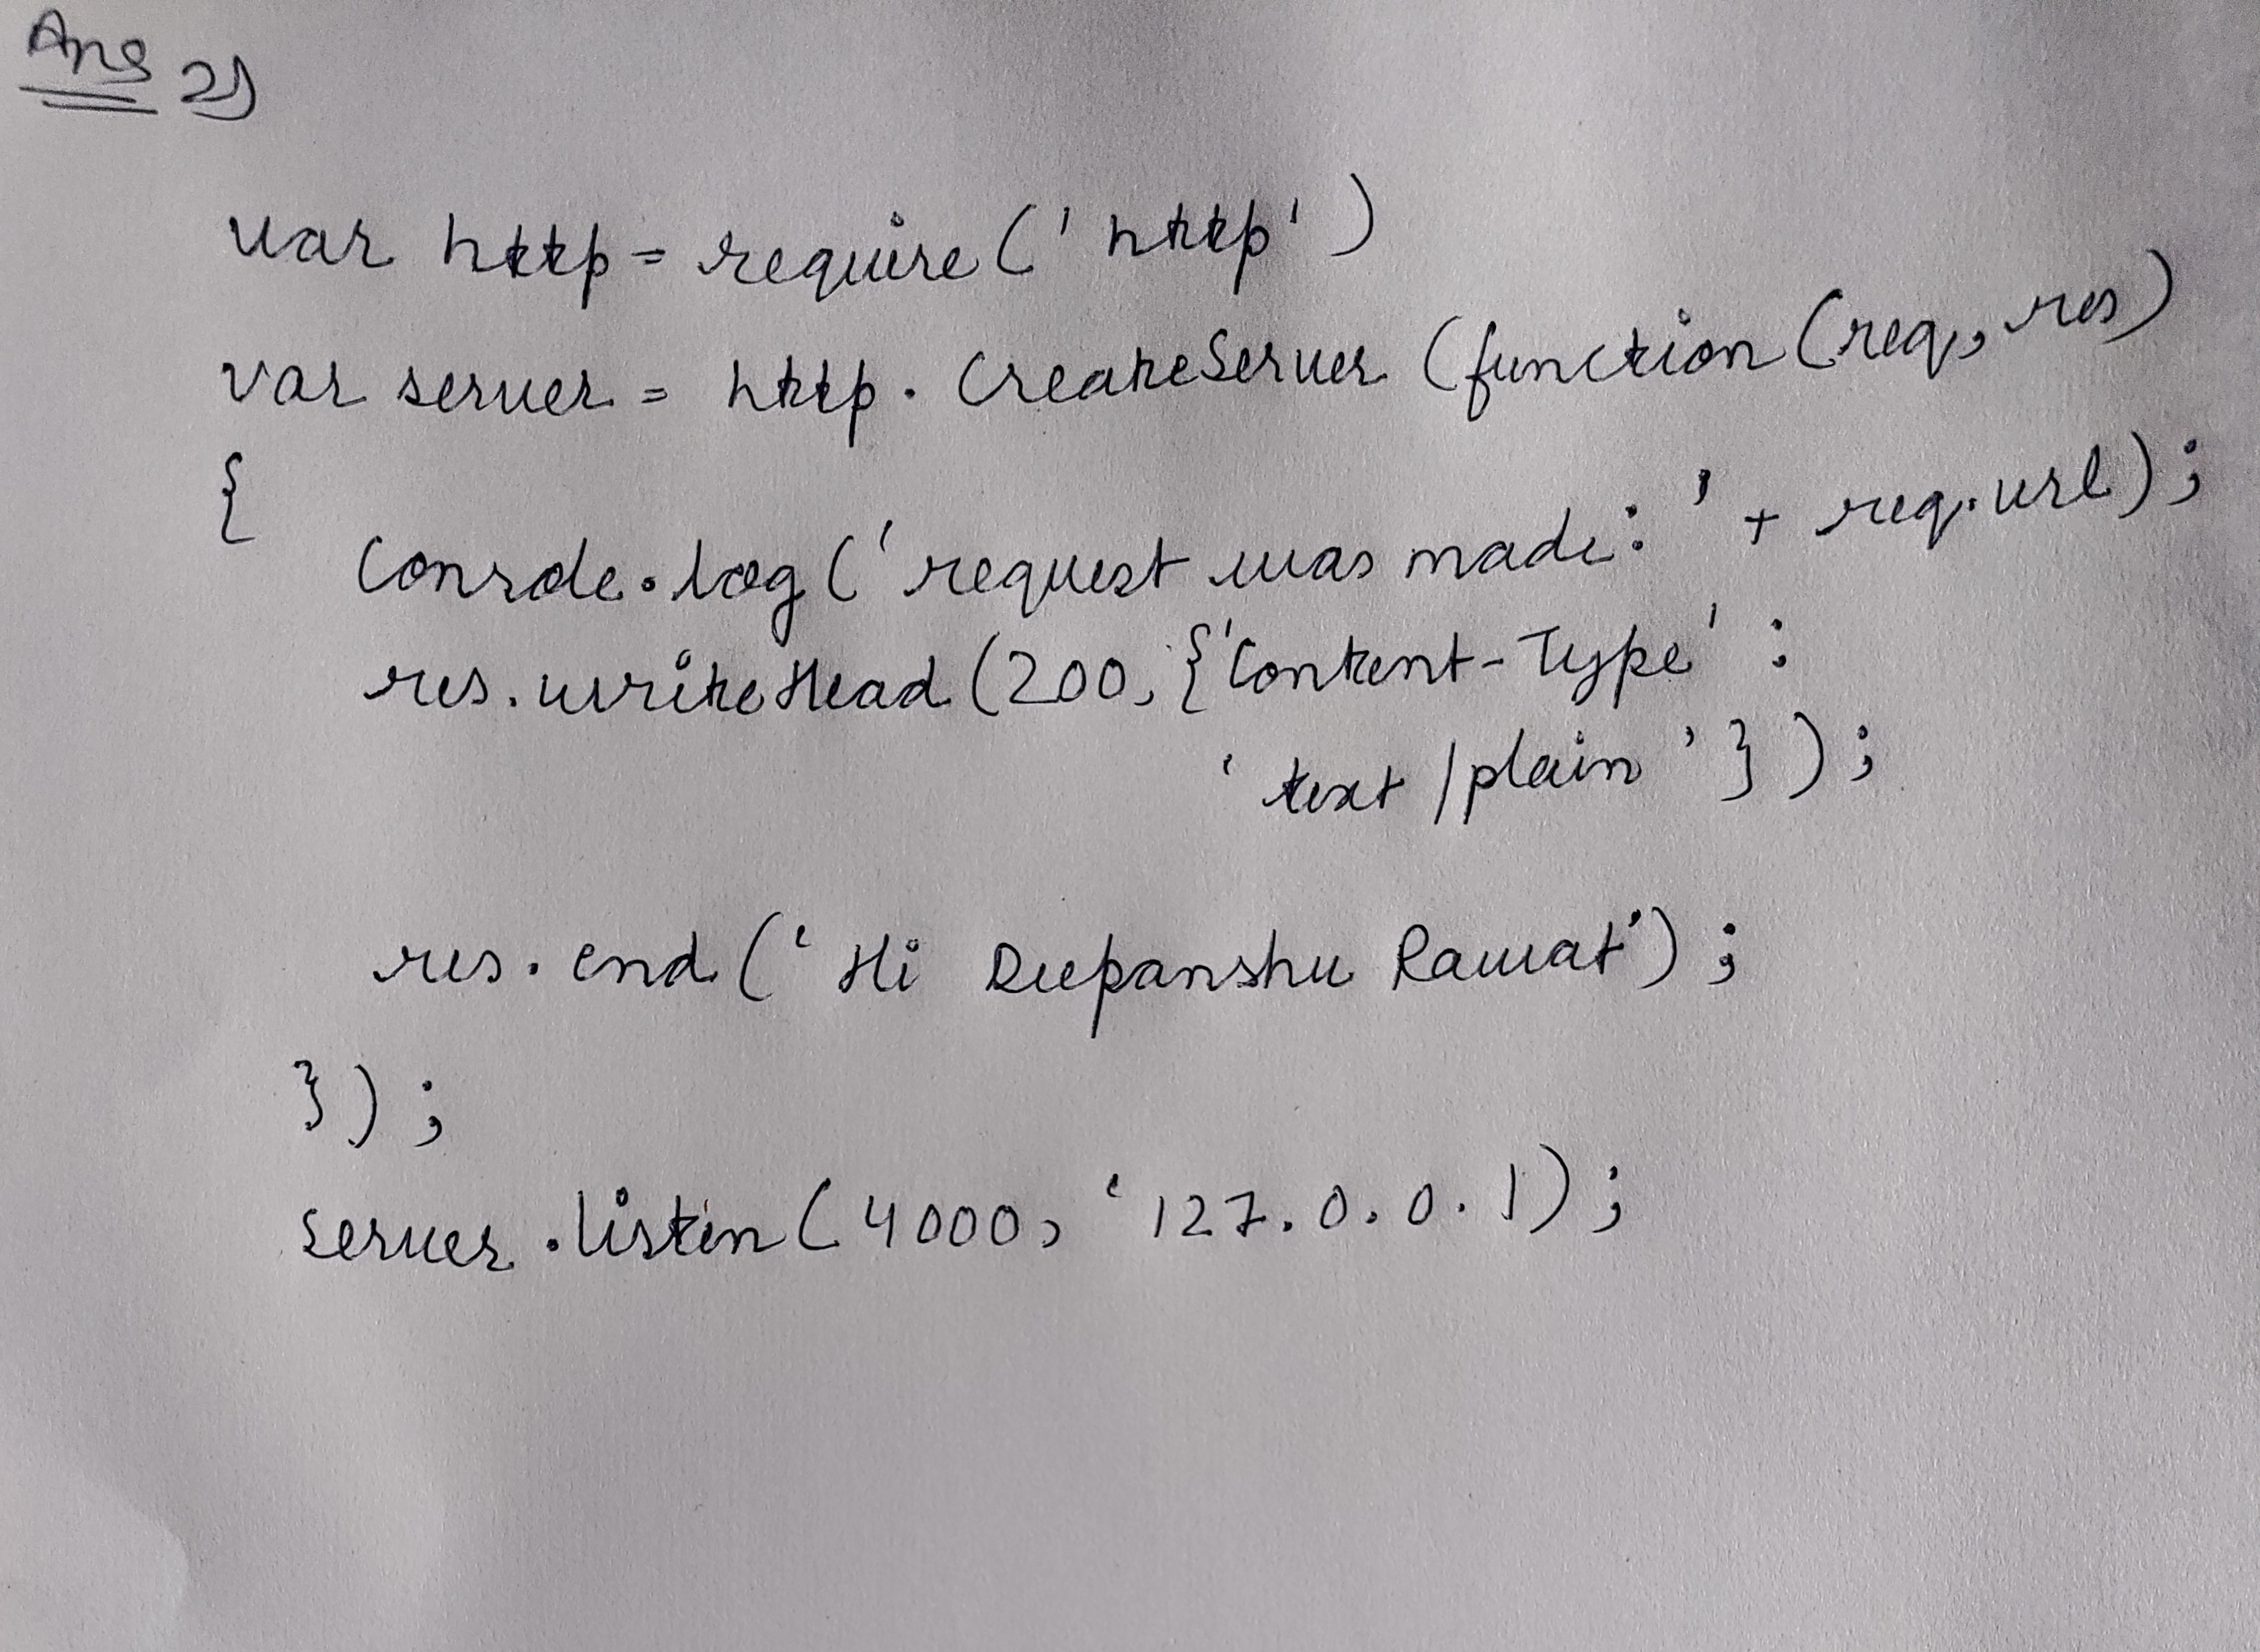 Ans 2)
var http = require('http')
var server = http.createServer(function(req, res)
{
console.log('request was made: ' + req.url);
res.writeHead(200, {'Content-Type' :
'text/plain'});
res.end('Hi Deepanshu Rawat');
});
server.listen(4000, '127.0.0.1);